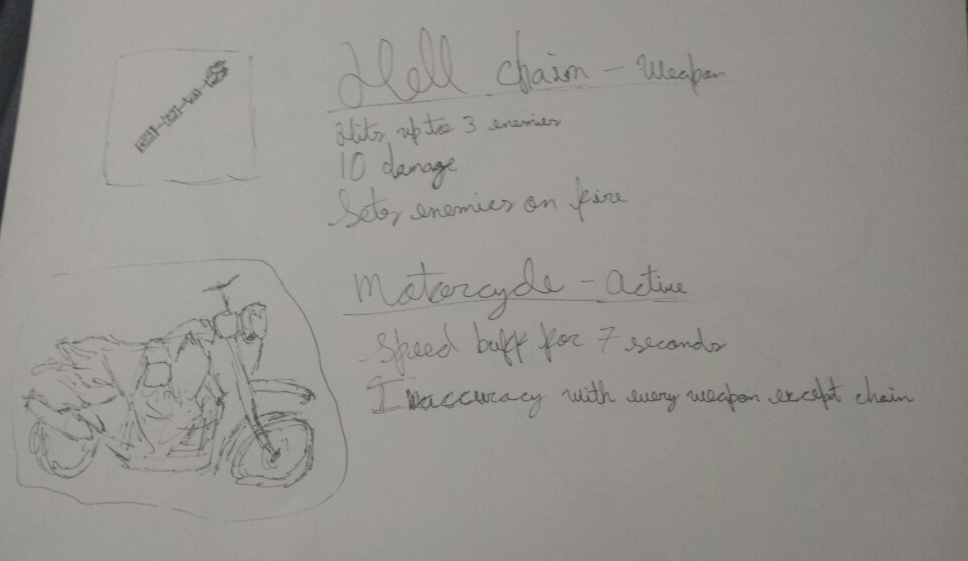 Hell chain - Weapon
Hits up to 3 enemies
10 damage
Sets enemies on fire
Motorcycle - Active
Speed buff for 7 seconds
Inaccuracy with every weapon except chain